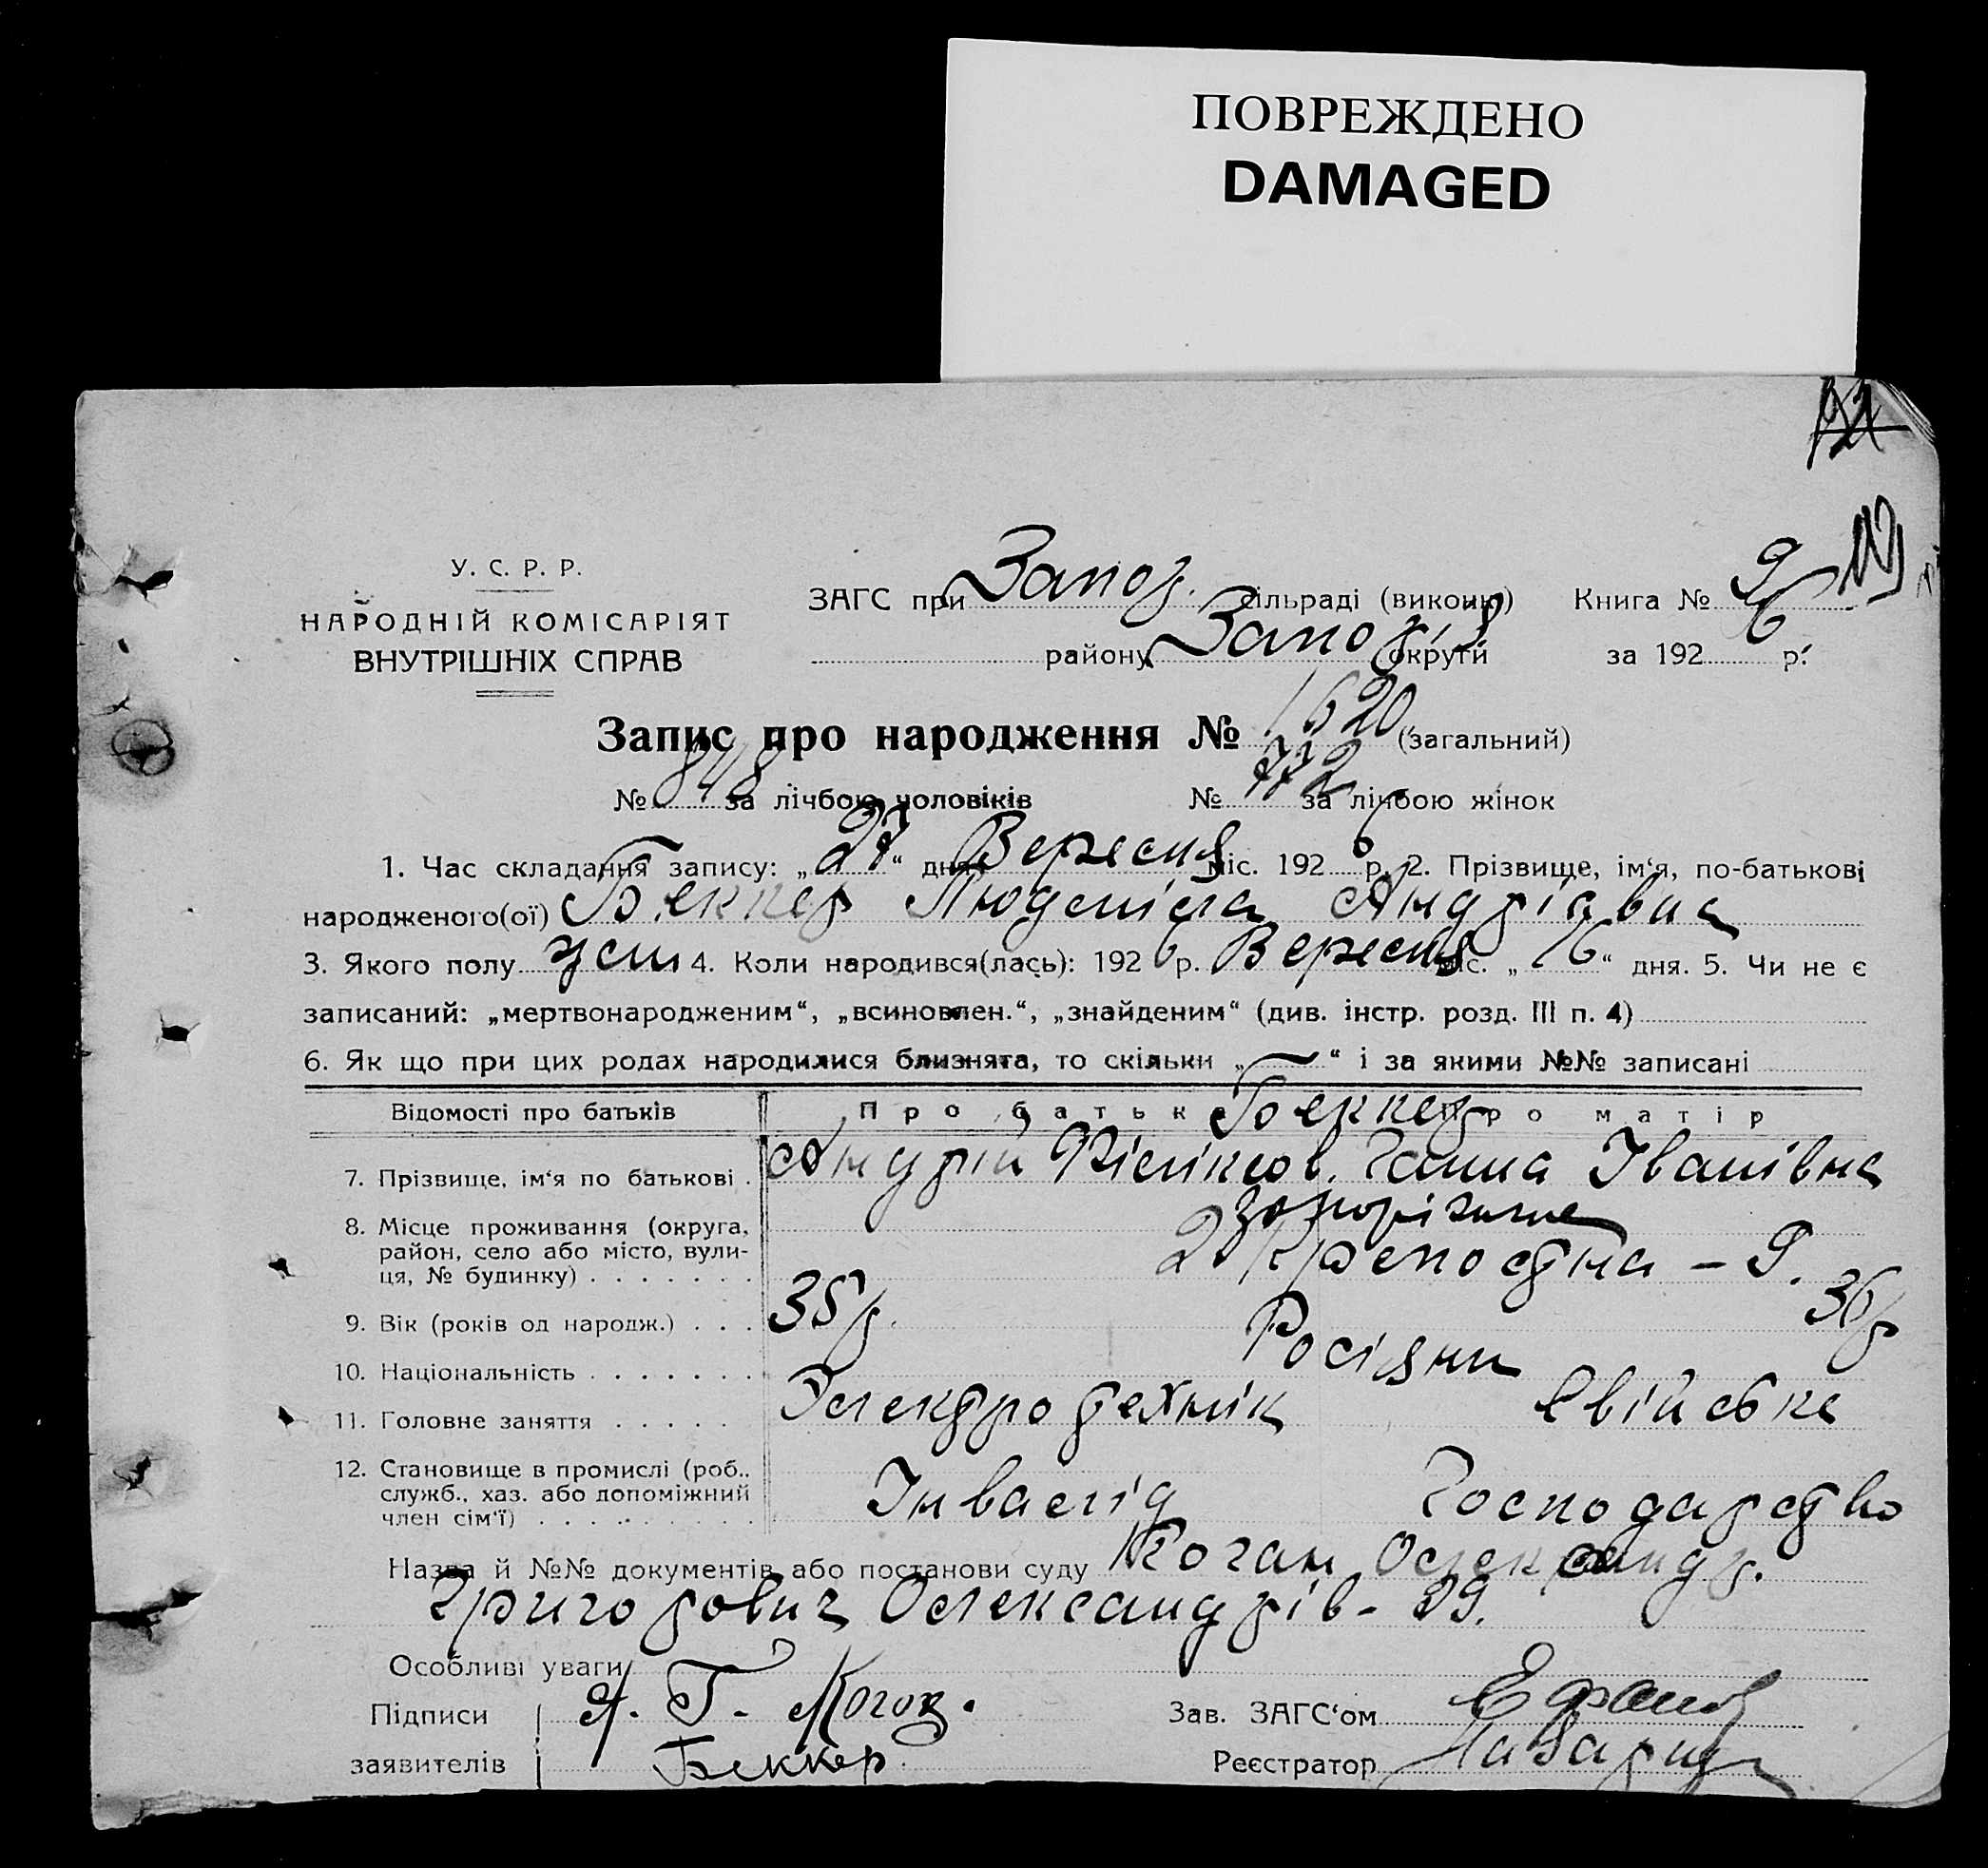 ПОВРЕЖДЕНО
DAMAGED
У. С. Р. Р.
НАРОДНІЙ КОМІСАРІЯТ
ВНУТРІШНІХ СПРАВ
ЗАГС при Запор. сільраді (виконк) Книга № 9
району Запоріз округи за 1926 р.
Запис про народження № 1620 (загальний)
№ 848 за лічбою чоловіків № 772 за лічбою жінок
1. Час складання запису: „27“ дня Вересня міс. 1926 р. 2. Прізвище, ім‘я, по-батькові
народженого(ої) Беккер Людміла Андріівна
3. Якого полу жін 4. Коли народився(лась): 1926 р. Вересня міс. „16“ дня. 5. Чи не є
записаний: „мертвонародженим“, „всиновлен.“, „знайденим“ (див. інстр. розд. III п. 4)
6. Як що при цих родах народилися близнята, то скільки „—“ і за якими №№ записані
Відомості про батьків Про батьк Беккер Про матір
7. Прізвище, ім‘я по батькові . Андрій Філіпов. Ганна Іванівна
Запоріжжя
8. Місце проживання (округа,
район, село або місто, вули-
ця, № будинку) . . . . . . . 2 Крепостна – 9.
9. Вік (років од народж.) . . . 35 р. 36 р
10. Національність . . . . . . . Росіяни
11. Головне заняття . . . . . Електротехнік Свійське
12. Становище в промислі (роб..
служб., хаз. або допоміжний
член сім‘ї) . . . . . . . . . Інвалід Господарство
Назва й №№ документів або постанови суду Коган Олександр.
Григорович Олександрів - 39.
Особливі уваги
Підписи А. Г. Коган. Зав. ЗАГС‘ом
заявителів Беккер Реєстратор